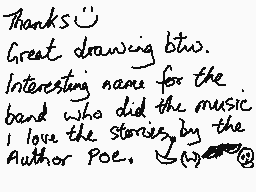 Thanks
Great drawing btw.
Interesting name for the
band who did the music
i love the stories, by the
Author Poe.